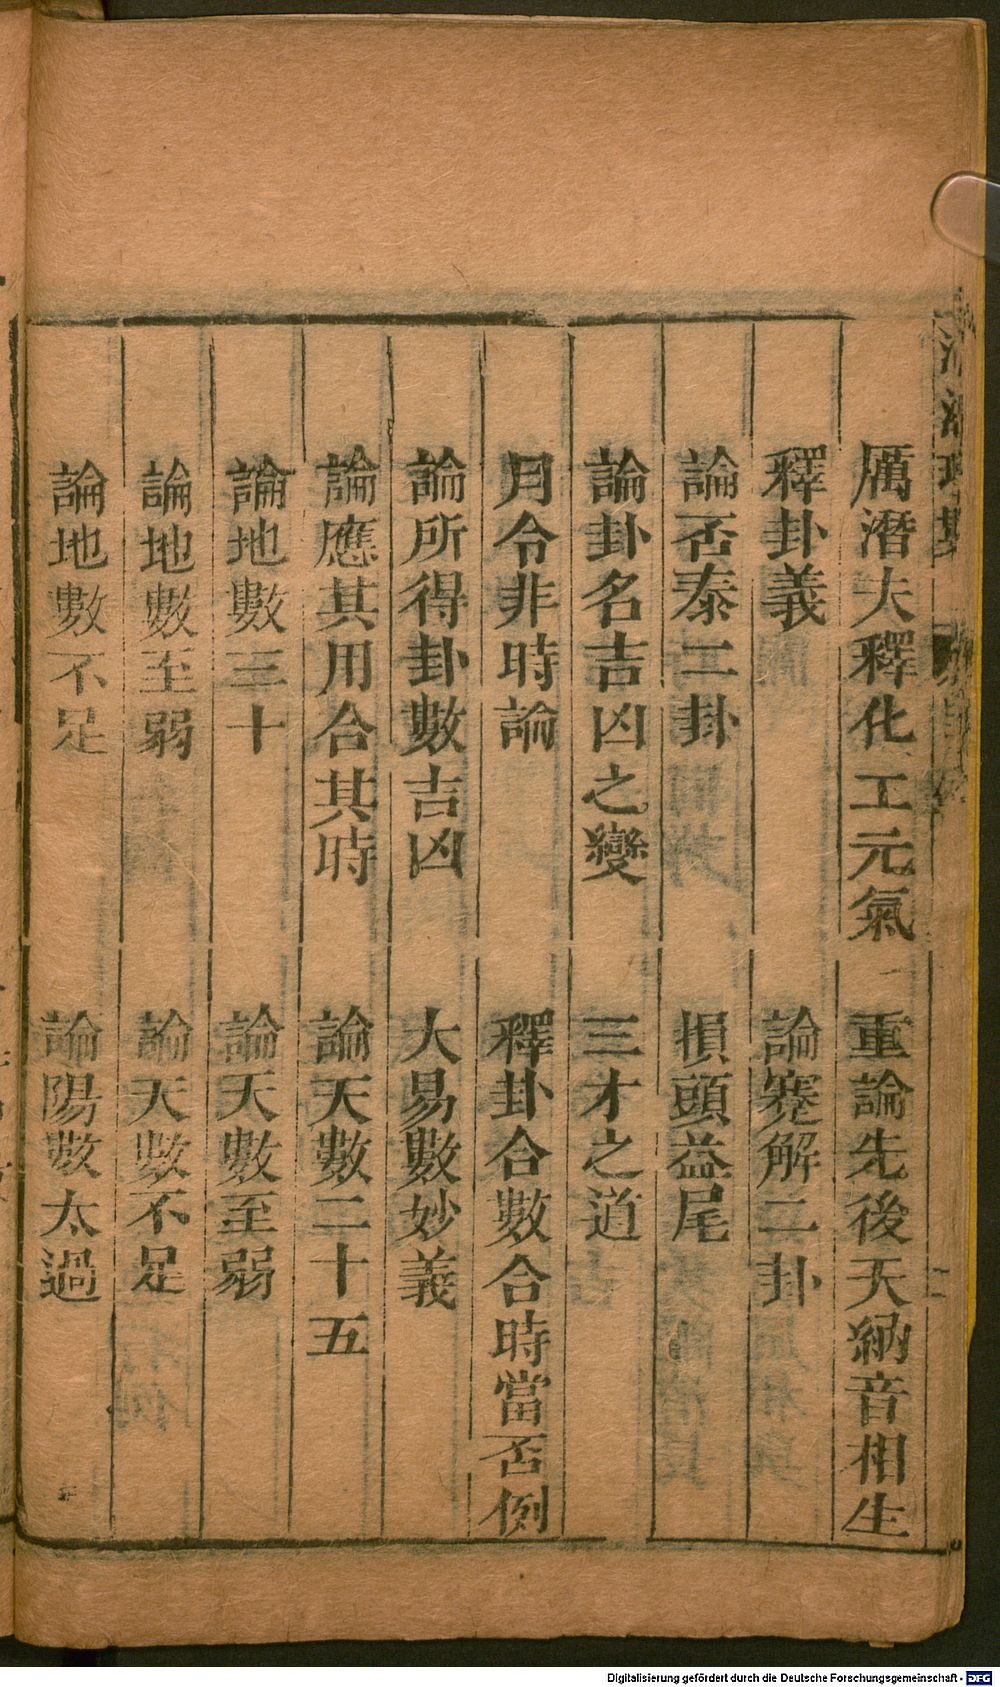 厲潛夫釋化工元氣　重論先後天納音相生
釋卦義　論蹇解二卦
論否泰二卦　損頭益尾
論卦名吉凶之變　三才之道
月令非時論　釋卦合數合時當否例
論所得卦數吉凶　大易數妙義
論應其用合其時　論天數二十五
論地數三十　論天數至弱
論地數至弱　論天數不足
論地數不足　論陽數太過
Digitalisierung gefördert durch die Deutsche Forschungsgemeinschaft - DFG